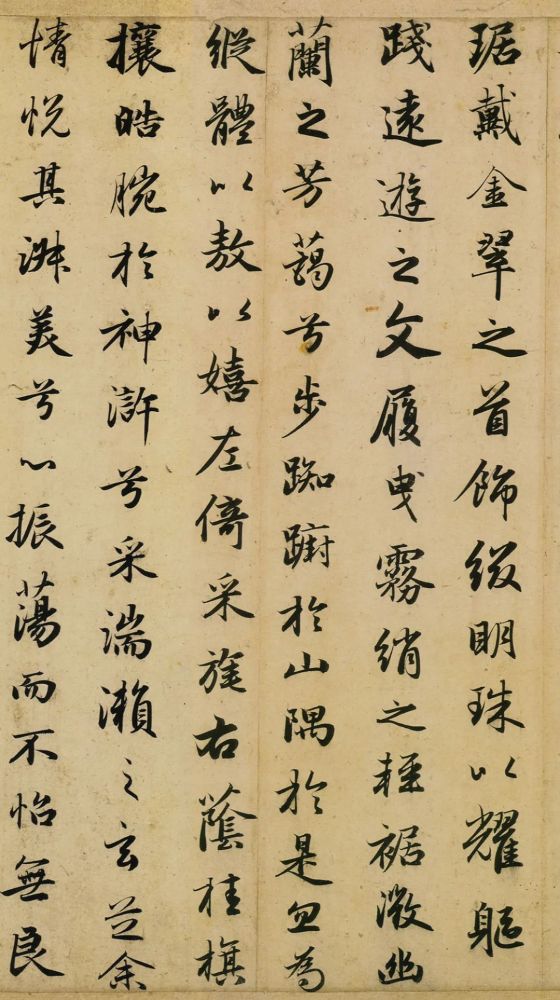 琚戴金翠之首飾綴明珠以耀軀
踐遠遊之文履曳霧綃之輕裾微幽
蘭之芳藹兮步踟躕於山隅於是忽焉
縱體以敖以嬉左倚采旄右蔭桂旗
攘皓腕於神滸兮采湍瀨之玄芝余
情悅其淑美兮心振蕩而不怡無良